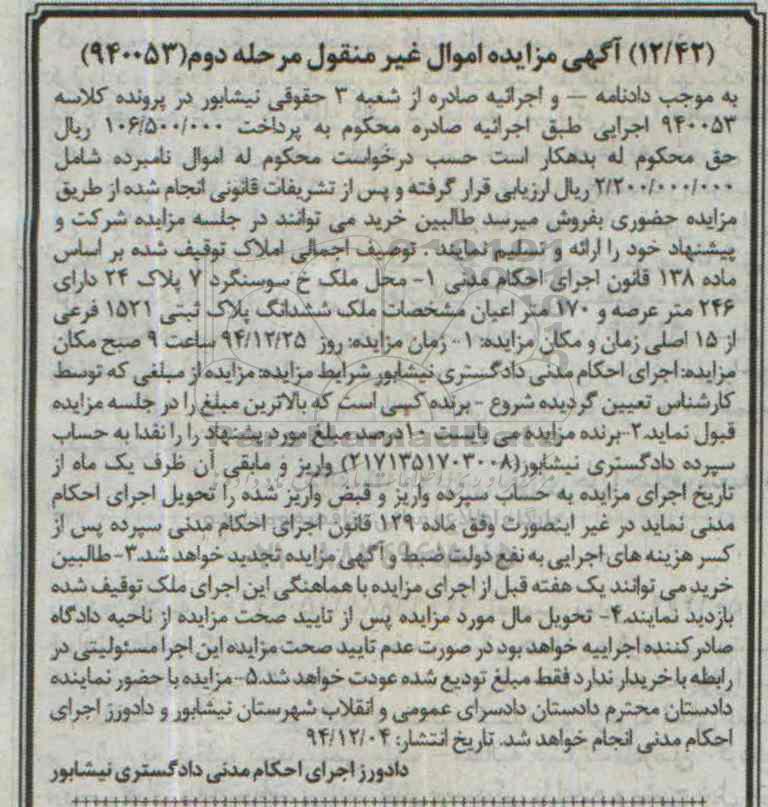 (۱۲/۴۲) آگهی مزایده اموال غیر منقول مرحله دوم(۹۴۰۰۵۳)
به موجب دادنامه — و اجرائیه صادره از شعبه ۳ حقوقی نیشابور در پرونده کلاسه
۹۴۰۰۵۳ اجرایی طبق اجرائیه صادره محکوم به پرداخت ۱۰۶/۵۰۰/۰۰۰ ریال
حق محکوم له بدهکار است حسب درخواست محکوم له اموال نامبرده شامل
۲/۲۰۰/۰۰۰/۰۰۰ ریال ارزیابی قرار گرفته و پس از تشریفات قانونی انجام شده از طریق
مزایده حضوری بفروش میرسد طالبین خرید می توانند در جلسه مزایده شرکت و
پیشنهاد خود را ارائه و تسلیم نمایند . توصیف اجمالی املاک توقیف شده بر اساس
ماده ۱۳۸ قانون اجرای احکام مدنی ۱- محل ملک خ سوسنگرد ۷ پلاک ۲۴ دارای
۲۴۶ متر عرصه و ۱۷۰ متر اعیان مشخصات ملک ششدانگ پلاک ثبتی ۱۵۲۱ فرعی
از ۱۵ اصلی زمان و مکان مزایده: ۱- زمان مزایده: روز ۹۴/۱۲/۲۵ ساعت ۹ صبح مکان
مزایده: اجرای احکام مدنی دادگستری نیشابور شرایط مزایده: مزایده از مبلغی که توسط
کارشناس تعیین گردیده شروع - برنده کسی است که بالاترین مبلغ را در جلسه مزایده
قبول نماید.۲-برنده مزایده می بایست ۱۰درصد مبلغ مورد پشنهاد را را نقدا به حساب
سپرده دادگستری نیشابور(۲۱۷۱۳۵۱۷۰۳۰۰۸) واریز و مابقی آن ظرف یک ماه از
تاریخ اجرای مزایده به حساب سپرده واریز و قبض واریز شده را تحویل اجرای احکام
مدنی نماید در غیر اینصورت وفق ماده ۱۲۹ قانون اجرای احکام مدنی سپرده پس از
کسر هزینه های اجرایی به نفع دولت ضبط و آگهی مزایده تجدید خواهد شد.۳-طالبین
خرید می توانند یک هفته قبل از اجرای مزایده با هماهنگی این اجرای ملک توقیف شده
بازدید نمایند.۴- تحویل مال مورد مزایده پس از تایید صحت مزایده از ناحیه دادگاه
صادر کننده اجراییه خواهد بود در صورت عدم تایید صحت مزایده این اجرا مسئولیتی در
رابطه با خریدار ندارد فقط مبلغ تودیع شده عودت خواهد شد.۵-مزایده با حضور نماینده
دادستان محترم دادستان دادسرای عمومی و انقلاب شهرستان نیشابور و دادورز اجرای
احکام مدنی انجام خواهد شد. تاریخ انتشار: ۹۴/۱۲/۰۴
دادورز اجرای احکام مدنی دادگستری نیشابور